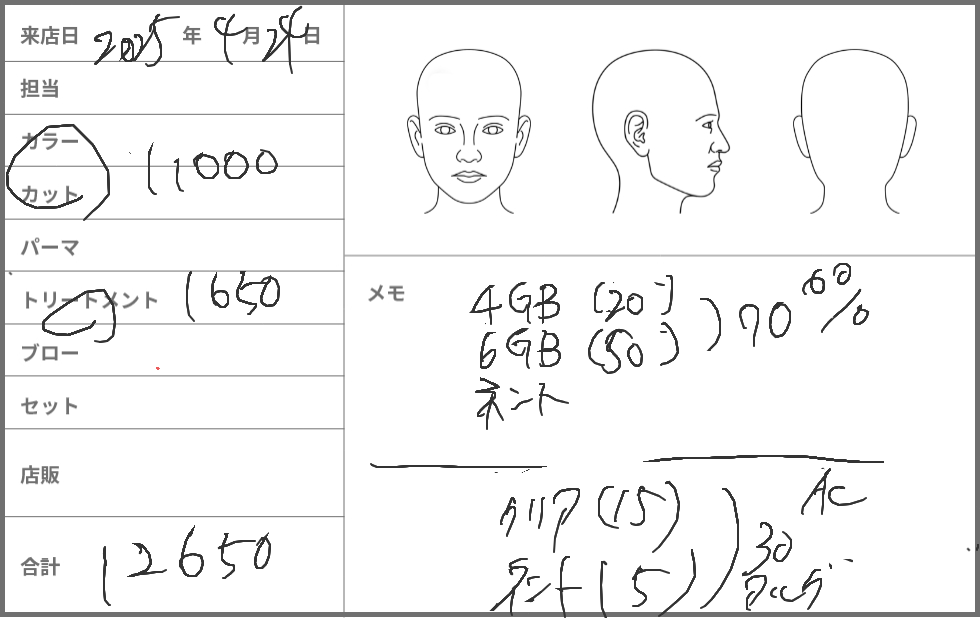 来店日 2025 年 4 月 24 日
担当
カラー
11000
カット
パーマ
トリートメント 1650
ブロー
セット
店販
合計 12650
メモ
4GB (20)
6GB (50) ) 70 60%
ネント
AC
クリア (15)
ネント (5) ) 30